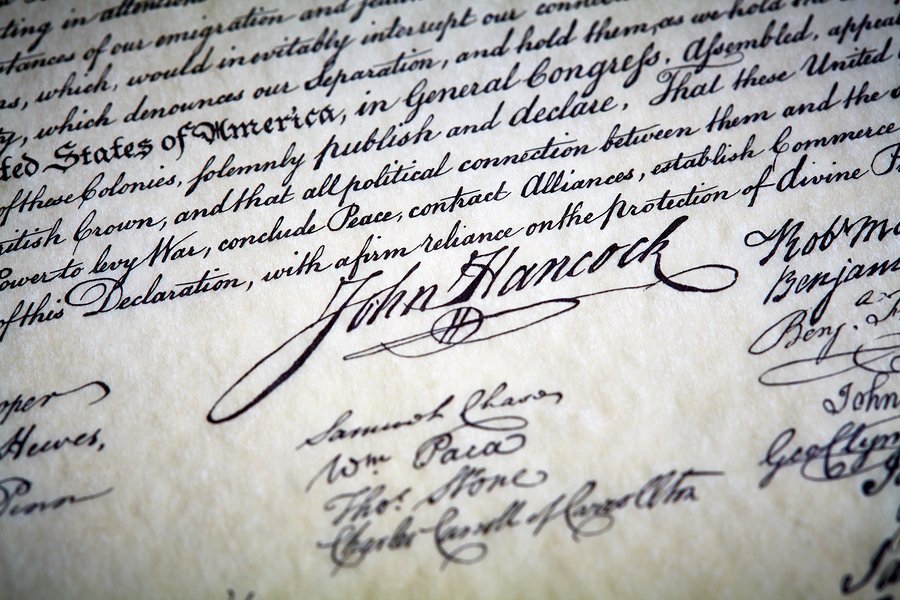 ting in attention
stances of our emigration and
rs, which, would inevitably interrupt our
ty, which denounces our Separation, and hold them, as we hold the
ted States of America, in General Congreſs, Aſsembled, appea
of these Colonies, solemnly publish and declare, That these United
ritish Crown, and that all political connection between them and the
Power to levy War, conclude Peace, contract Alliances, establish Commerce
of this Declaration, with a firm reliance on the protection of divine P
John Hancock
Robt M
Benjam
Benj. F
John
Geo Clym
oper
Hewes,
Penn
Samuel Chase
Wm Paca
Thos. Stone
Charles Carroll of Carrollton